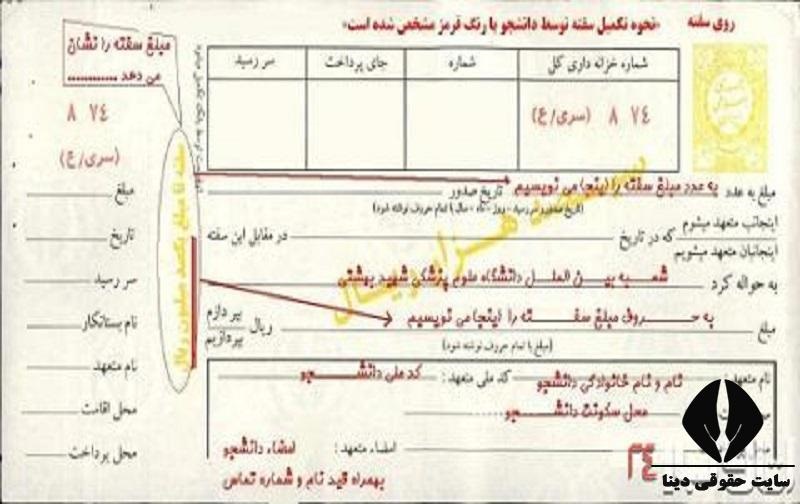 روی سفته «نحوه تکمیل سفته توسط دانشجو با رنگ قرمز مشخص شده است»
مبلغ سفته را نشان
می دهد ............
شماره خزانه داری کل شماره جای پرداخت سر رسید
۷۴ ۸ (سری/ع)
۷۴ ۸
(سری/ع)
سفته تا مبلغ یکصد میلیون ریال
مبلغ به عدد به عدد مبلغ سفته را اینجا می نویسیم تاریخ صدور
(تاریخ صدور و سررسید - روز - ماه - سال با تمام حروف نوشته شود)
اینجانب متعهد میشوم
اینجانبان متعهد میشویم
که در تاریخ در مقابل این سفته
به حواله کرد شعبه بین الملل دانشگاه علوم پزشکی شهید بهشتی
مبلغ به حروف مبلغ سفته را اینجا می نویسیم ریال
بپردازم
بپردازیم
(مبلغ با تمام حروف نوشته شود)
نام متعهد: نام و نام خانوادگی دانشجو کد ملی متعهد: کد ملی دانشجو
محل سکونت دانشجو
امضاء متعهد: امضاء دانشجو
بهمراه قید نام و شماره تماس
۲۴
مبلغ
تاریخ
سر رسید
نام بستانکار
نام متعهد
محل اقامت
محل پرداخت
سایت حقوقی دینا